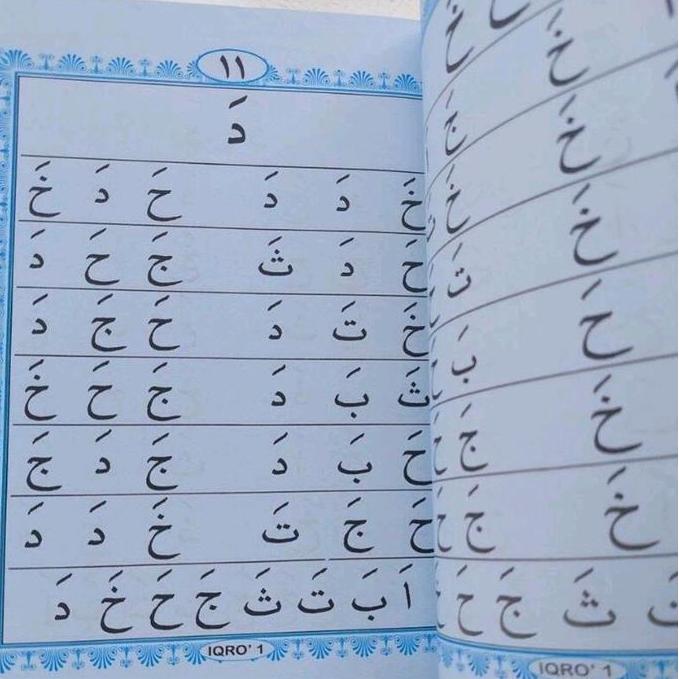 ١١
دَ
خَ دَ دَ حَ دَ خَ
حَ دَ ثَ جَ حَ دَ
خَ تَ دَ حَ جَ دَ
ثَ بَ دَ جَ حَ خَ
حَ بَ دَ جَ دَ جَ
حَ جَ تَ خَ دَ دَ
اَ بَ تَ ثَ جَ حَ خَ دَ
IQRO' 1
خَ
خَ جَ
خَ خَ
خَ تَ
حَ بَ
خَ جَ
خَ جَ
ثَ جَ حَ
IQRO' 1